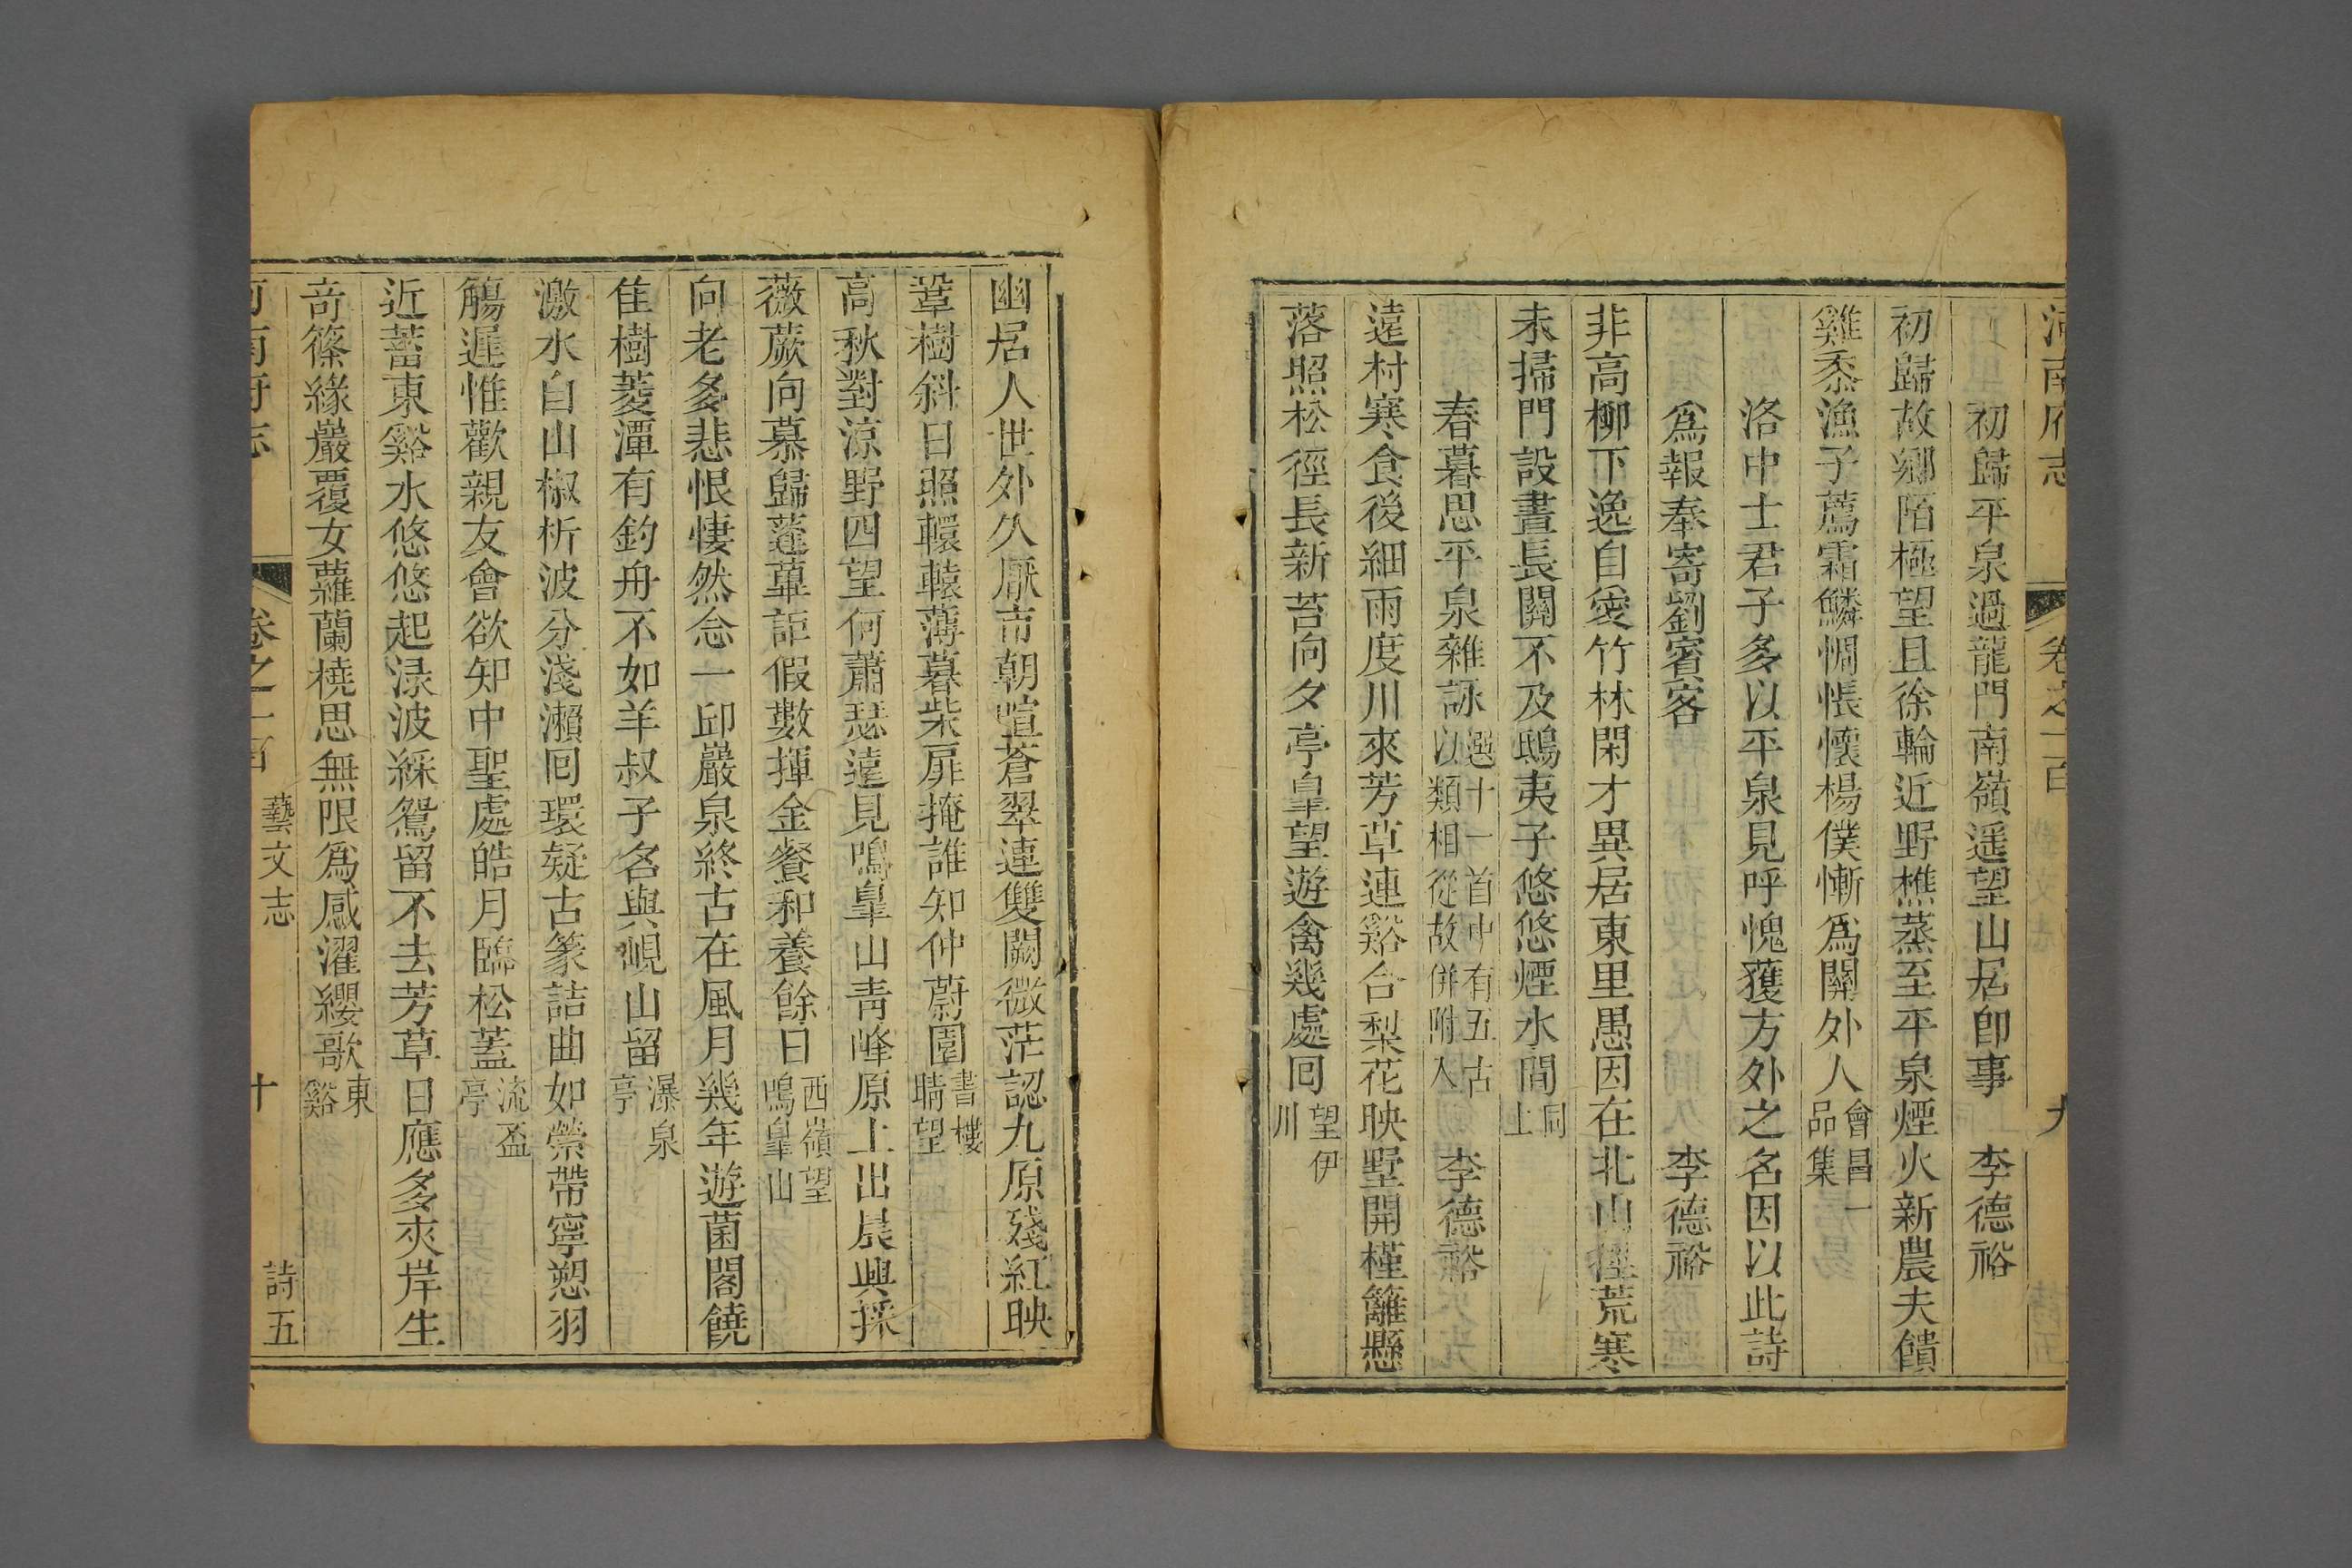 河南府志 卷之一百 九
初歸平泉過龍門南嶺遥望山居卽事 李德裕
初歸故鄉陌極望且徐輪近野樵蒸至平泉煙火新農夫饋
雞黍漁子薦霜鱗惆悵懷楊僕慚爲關外人會昌一品集
洛中士君子多以平泉見呼愧獲方外之名因以此詩
爲報奉寄劉賓客 李德裕
非高柳下逸自愛竹林閑才異居東里愚因在北山徑荒寒
未掃門設晝長關不及鴟夷子悠悠煙水間同上
春暮思平泉雜詠選十一首中有五古以類相從故併附入 李德裕
遠村寒食後細雨度川來芳草連谿合梨花映墅開槿籬懸
落照松徑長新苔向夕亭皐望遊禽幾處囘望伊川
幽居人世外久厭市朝喧蒼翠連雙闕微茫認九原殘紅映
鞏樹斜日照轘轅薄暮柴扉掩誰知仲蔚園書樓晴望
高秋對涼野四望何蕭瑟遠見鳴皐山青峰原上出晨興採
薇蕨向慕歸蓬蓽詎假數揮金餐和養餘日西嶺望鳴皐山
向老多悲恨悽然念一邱巖泉終古在風月幾年遊菌閣饒
佳樹菱潭有釣舟不如羊叔子名與峴山留瀑泉亭
激水自山椒析波分淺瀨囘環疑古篆詰曲如縈帶寧愬羽
觴遲惟歡親友會欲知中聖處皓月臨松蓋流盃亭
近蓄東谿水悠悠起淥波綵鴛留不去芳草日應多夾岸生
奇篠緣巖覆女蘿蘭橈思無限爲感濯纓歌東谿
河南府志 卷之一百 藝文志 十 詩五